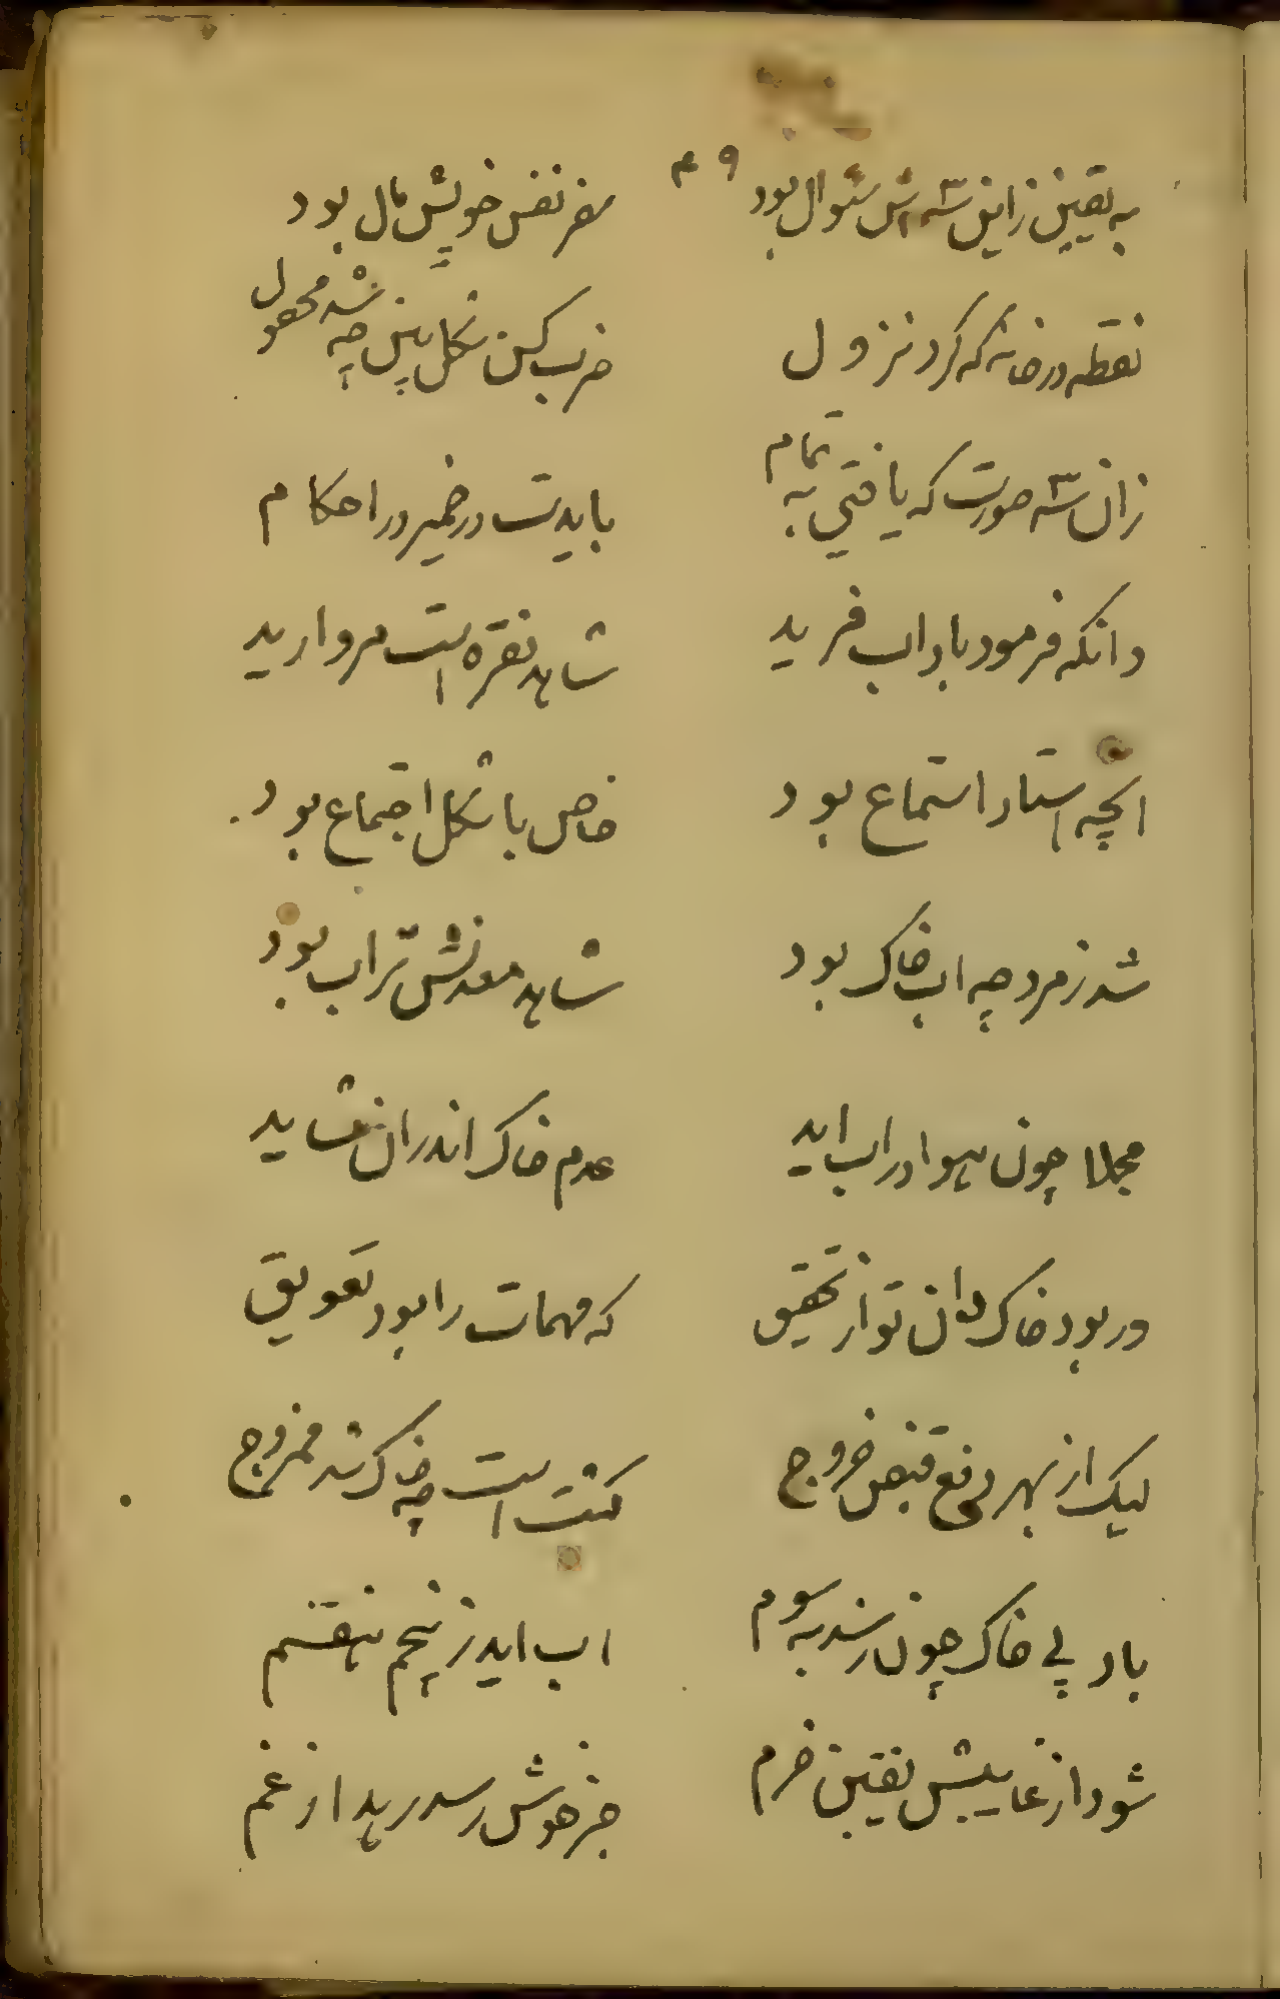 به یقین زاین سه اش سئوال بود ۹ م سفر نفس خویش مال بود
نقطه در خانه که کرد نزول ضرب کن شکل بین چه شد محصول
زان سه صورت که یافتی به تمام بایدت در ضمیر و در احکام
دانکه فرمود باد اب فرید شاهد نقره است مروارید
انچه استاد استماع بود خاص با شکل اجتماع بود
شد زمرد چه اب خاک بود شاهد معدنش تراب بود
مجملا چون هوا در اب اید عدم خاک اندران شاید
ور بود خاک دان تو از تحقیق که مهمات را بود تعویق
لیک از بهر دفع قبض خروج کشت است چه خاک شد ممزوج
باد پی خاک چون رسد به سوم اب اید ز پنجم
شود از غایبش یقین خرم خبر خوش رسد رهد از غم